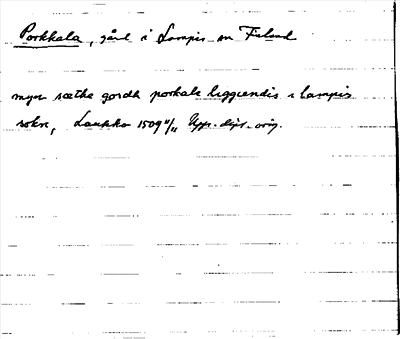 Porkkala, gård i Lampis sn Finland
myn sætha gordh porkala liggiendis i lampis
sokn, Laukko 1509 4/11 Upps. dipl. orig.